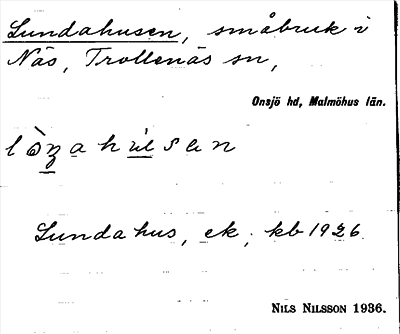 Lundahusen, småbruk i
Näs, Trollenäs sn,
Onsjö hd, Malmöhus län.
Lundahus, ek, kb 1926.
NILS NILSSON 1936.